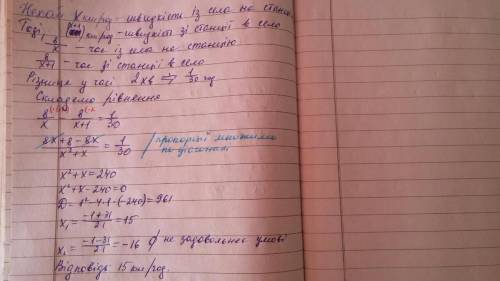 Нехай x км/год - швидкість із села на станц
Тоді, (x+1) км/год - швидкість зі станції в село
8/x - час із села на станцію
8/x+1 - час зі станції в село
Різниця у часі 2хв ⇒ 1/30 год
Складемо рівняння
8/x - 8/x+1 = 1/30
8x+8-8x/x²+x = 1/30 / пропорції множимо по діагоналі
x²+x=240
x²+x-240=0
D=1²-4·1·(-240)=961
x₁= -1+31/2·1 =15
x₂= -1-31/2·1 = -16 ∅ не задовольняє умові
Відповідь: 15 км/год.